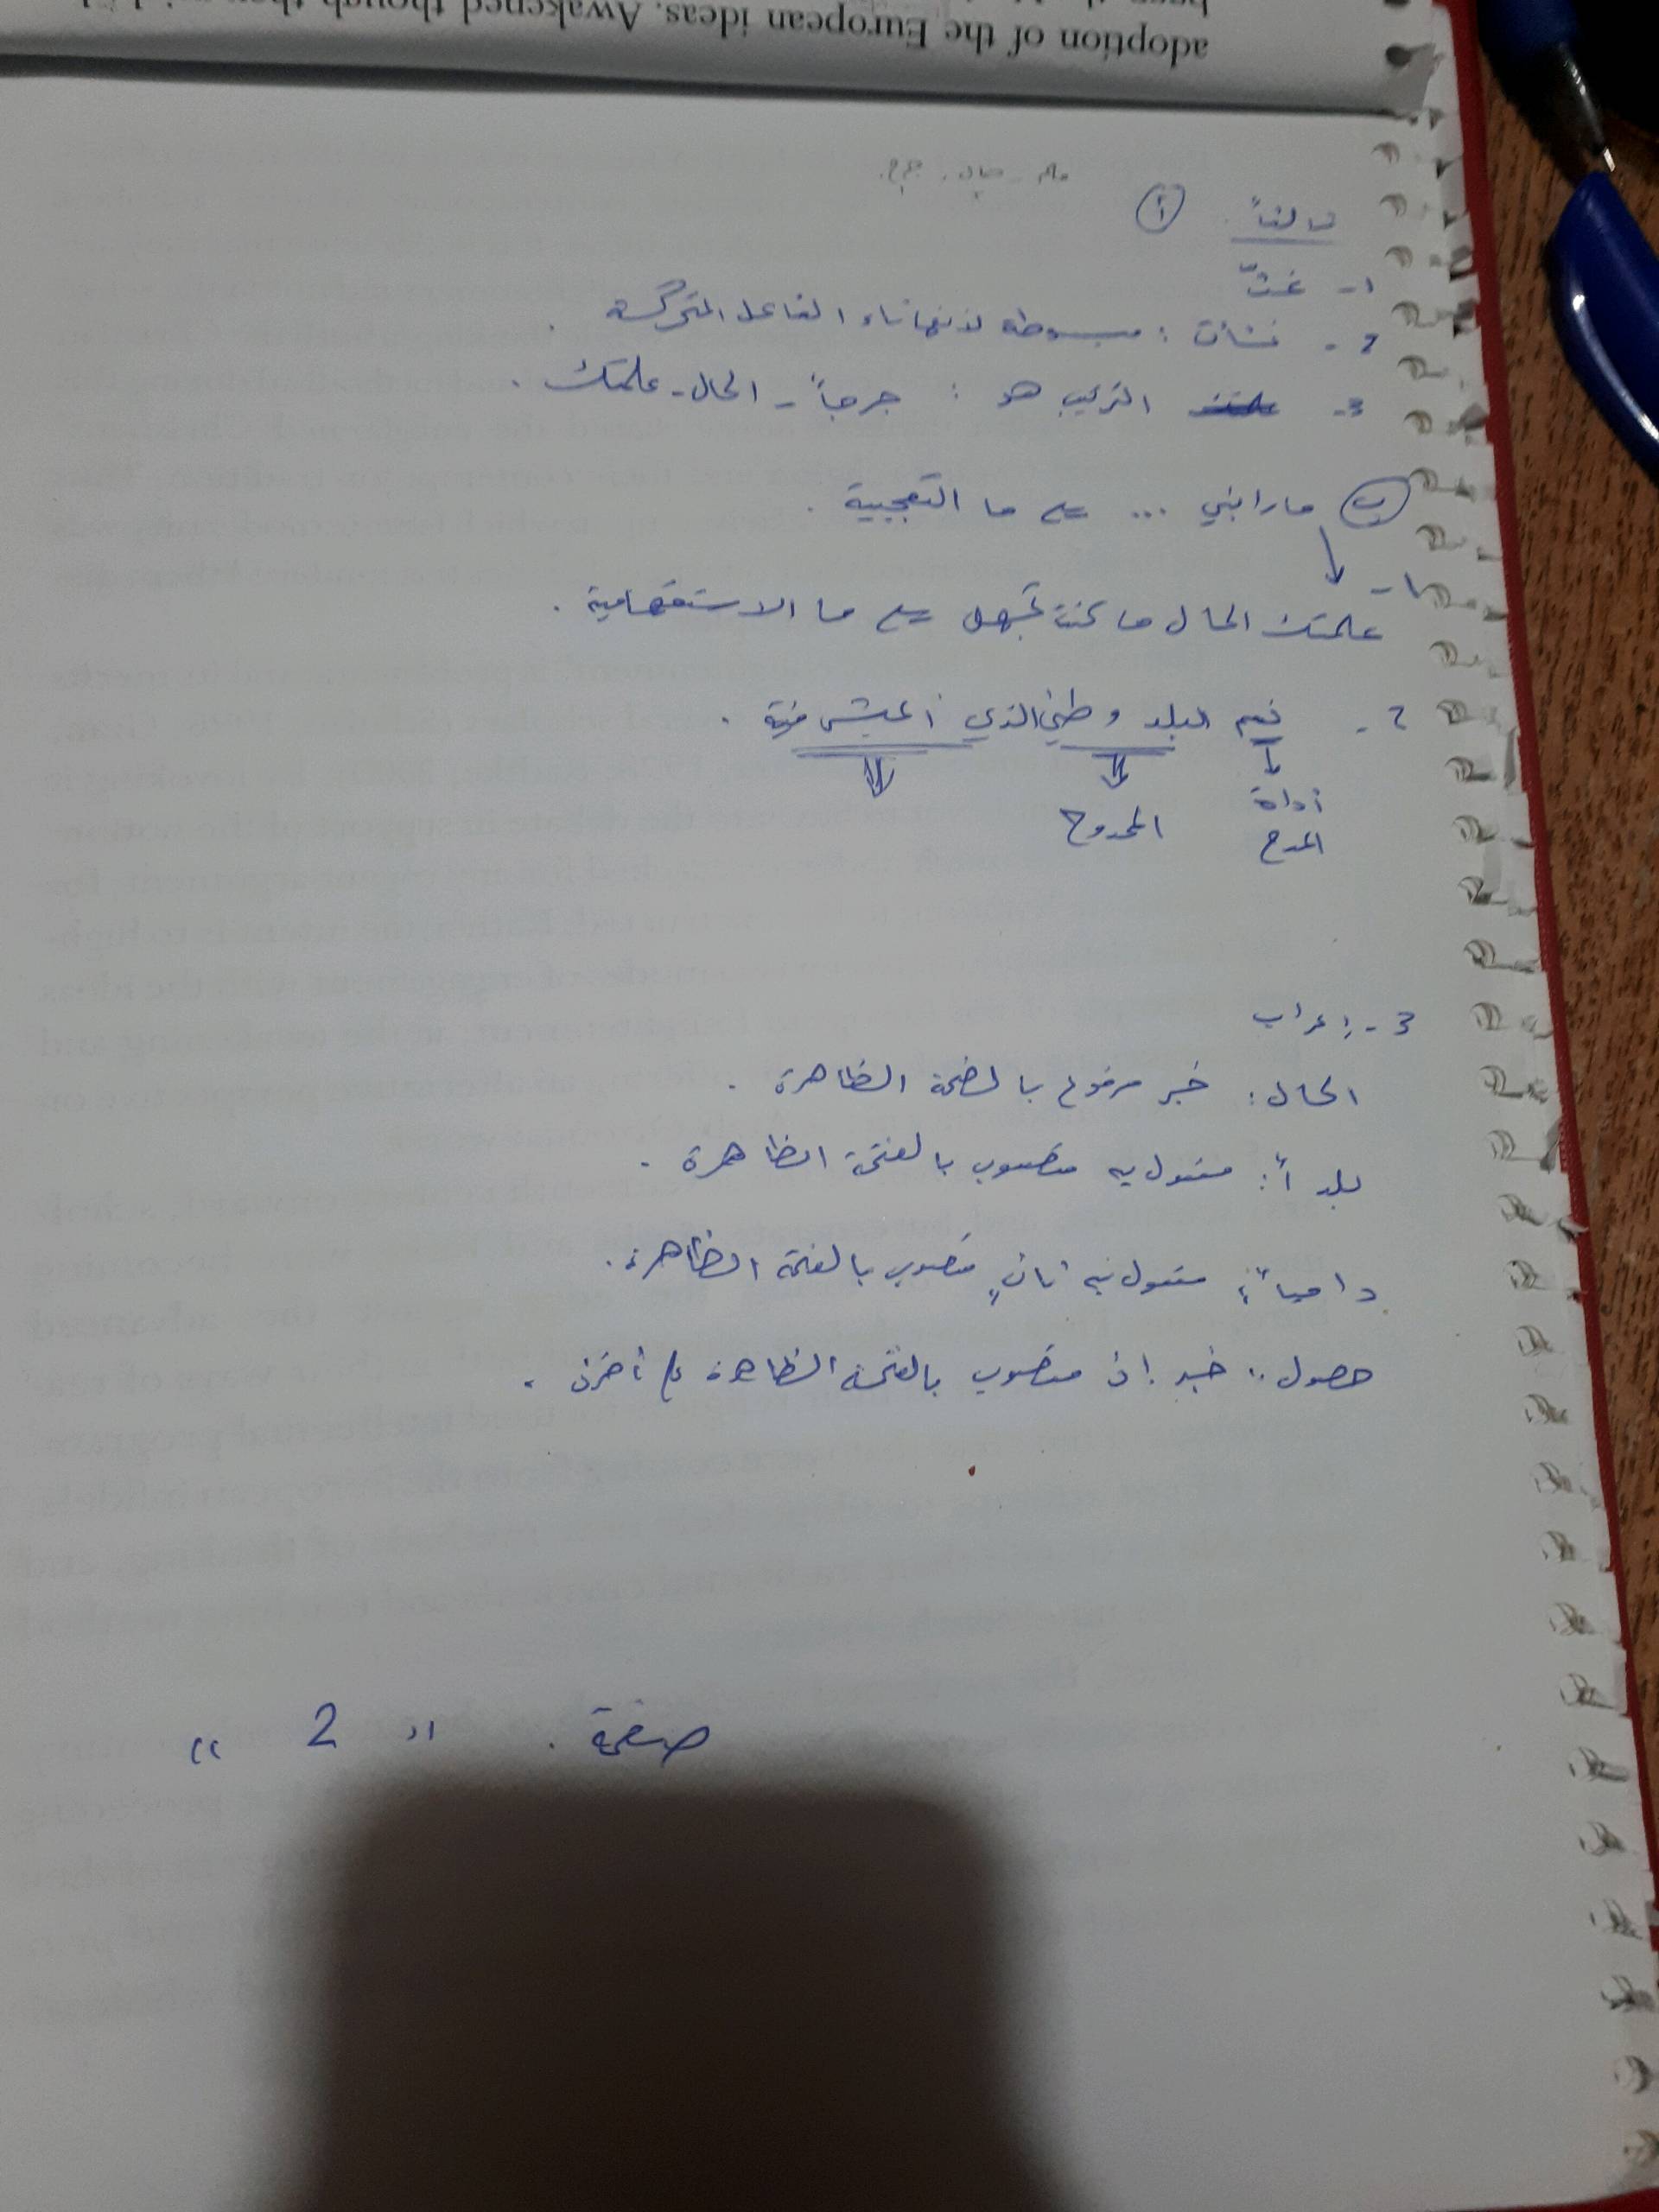 adoption of the European ideas. Awakened though they
ثالثاً. أ
١- غثّ
2- نشأت : مبسوطة لأنها تاء الفاعل المتحركة .
3- التركيب هو : جرحاً - الحال - علمتك .
ب ما رابني ... ما التعجبية .
١-
علمتك الحال ما كنت تجهل ما الاستفهامية .
2- نعم البلد وطني الذي أعيش فية .
أداة
المدح الممدوح
3- إعراب
الحال : خبر مرفوع بالضمة الظاهرة .
بلداً : مفعول به منصوب بالفتحة الظاهرة .
دامياً : مفعول به ثانٍ منصوب بالفتحة الظاهرة .
حصول : خبر إن منصوب بالفتحة الظاهرة
صفحة . " 2 "